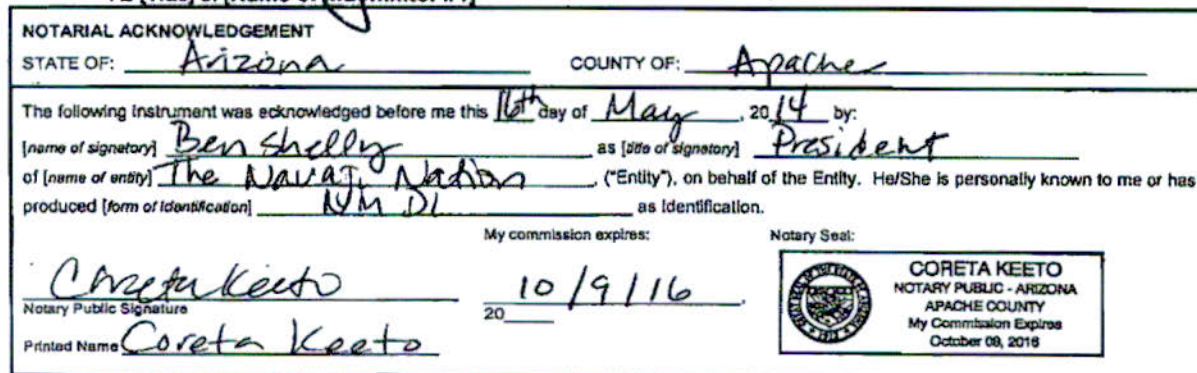 NOTARIAL ACKNOWLEDGEMENT
STATE OF: Arizona COUNTY OF: Apache
The following instrument was acknowledged before me this 16th day of May, 2014 by:
[name of signatory] Ben Shelly as [title of signatory] President
of [name of entity] The Navajo Nation, ("Entity"), on behalf of the Entity. He/She is personally known to me or has
produced [form of identification] NM DL as Identification.
My commission expires: Notary Seal:
Coreta Keeto 10/9/16
Notary Public Signature 20
Printed Name Coreta Keeto
CORETA KEETO
NOTARY PUBLIC - ARIZONA
APACHE COUNTY
My Commission Expires
October 09, 2016